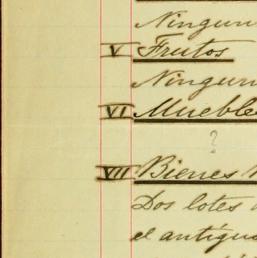 Ningun
V Frutos
Ningun
VI Mueble
?
VII Bienes
Dos lotes
el antigu